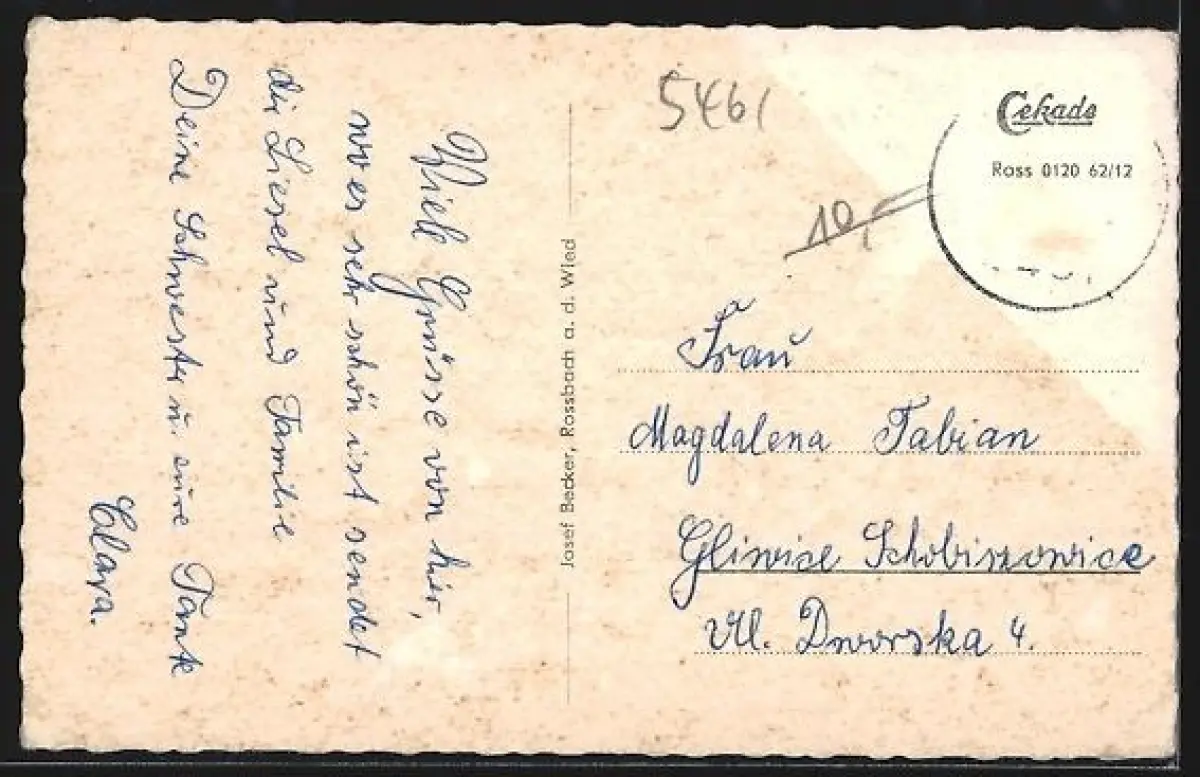 Viele Grüsse von hier,
wo es sehr schön ist sendet
die Liesel und Familie
Deine Schwester u. eure Tante
Clara.
Josef Becker, Rossbach a. d. Wied
5461
10,-
Cekade
Ross 0120 62/12
Frau
Magdalena Fabian
Gliwice Schobiszowice
Ul. Dworska 4.